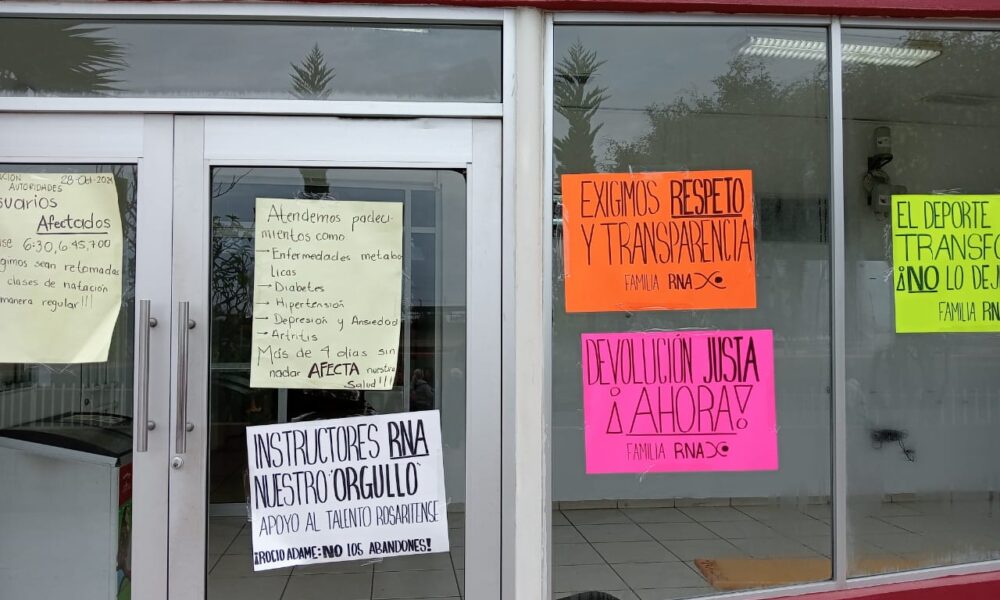 28-Oct-2024
AUTORIDADES
Afectados
6:30, 6:45, 7:00
sean retomadas
clases de natación
manera regular!!!
Atendemos padeci-
mientos como
→ Enfermedades metabo
licas
→ Diabetes
→ Hipertensión
→ Depresión y Ansiedad
→ Artritis
Más de 4 días sin
nadar AFECTA nuestra
Salud!!!
INSTRUCTORES RNA
NUESTRO "ORGULLO"
APOYO AL TALENTO ROSARITENSE
¡ROCIO ADAME: NO LOS ABANDONES!
EXIGIMOS RESPETO
Y TRANSPARENCIA
FAMILIA RNA
DEVOLUCIÓN JUSTA
¡AHORA!
FAMILIA RNA
EL DEPORTE
TRANSFO
¡NO LO DEJ
FAMILIA RNA